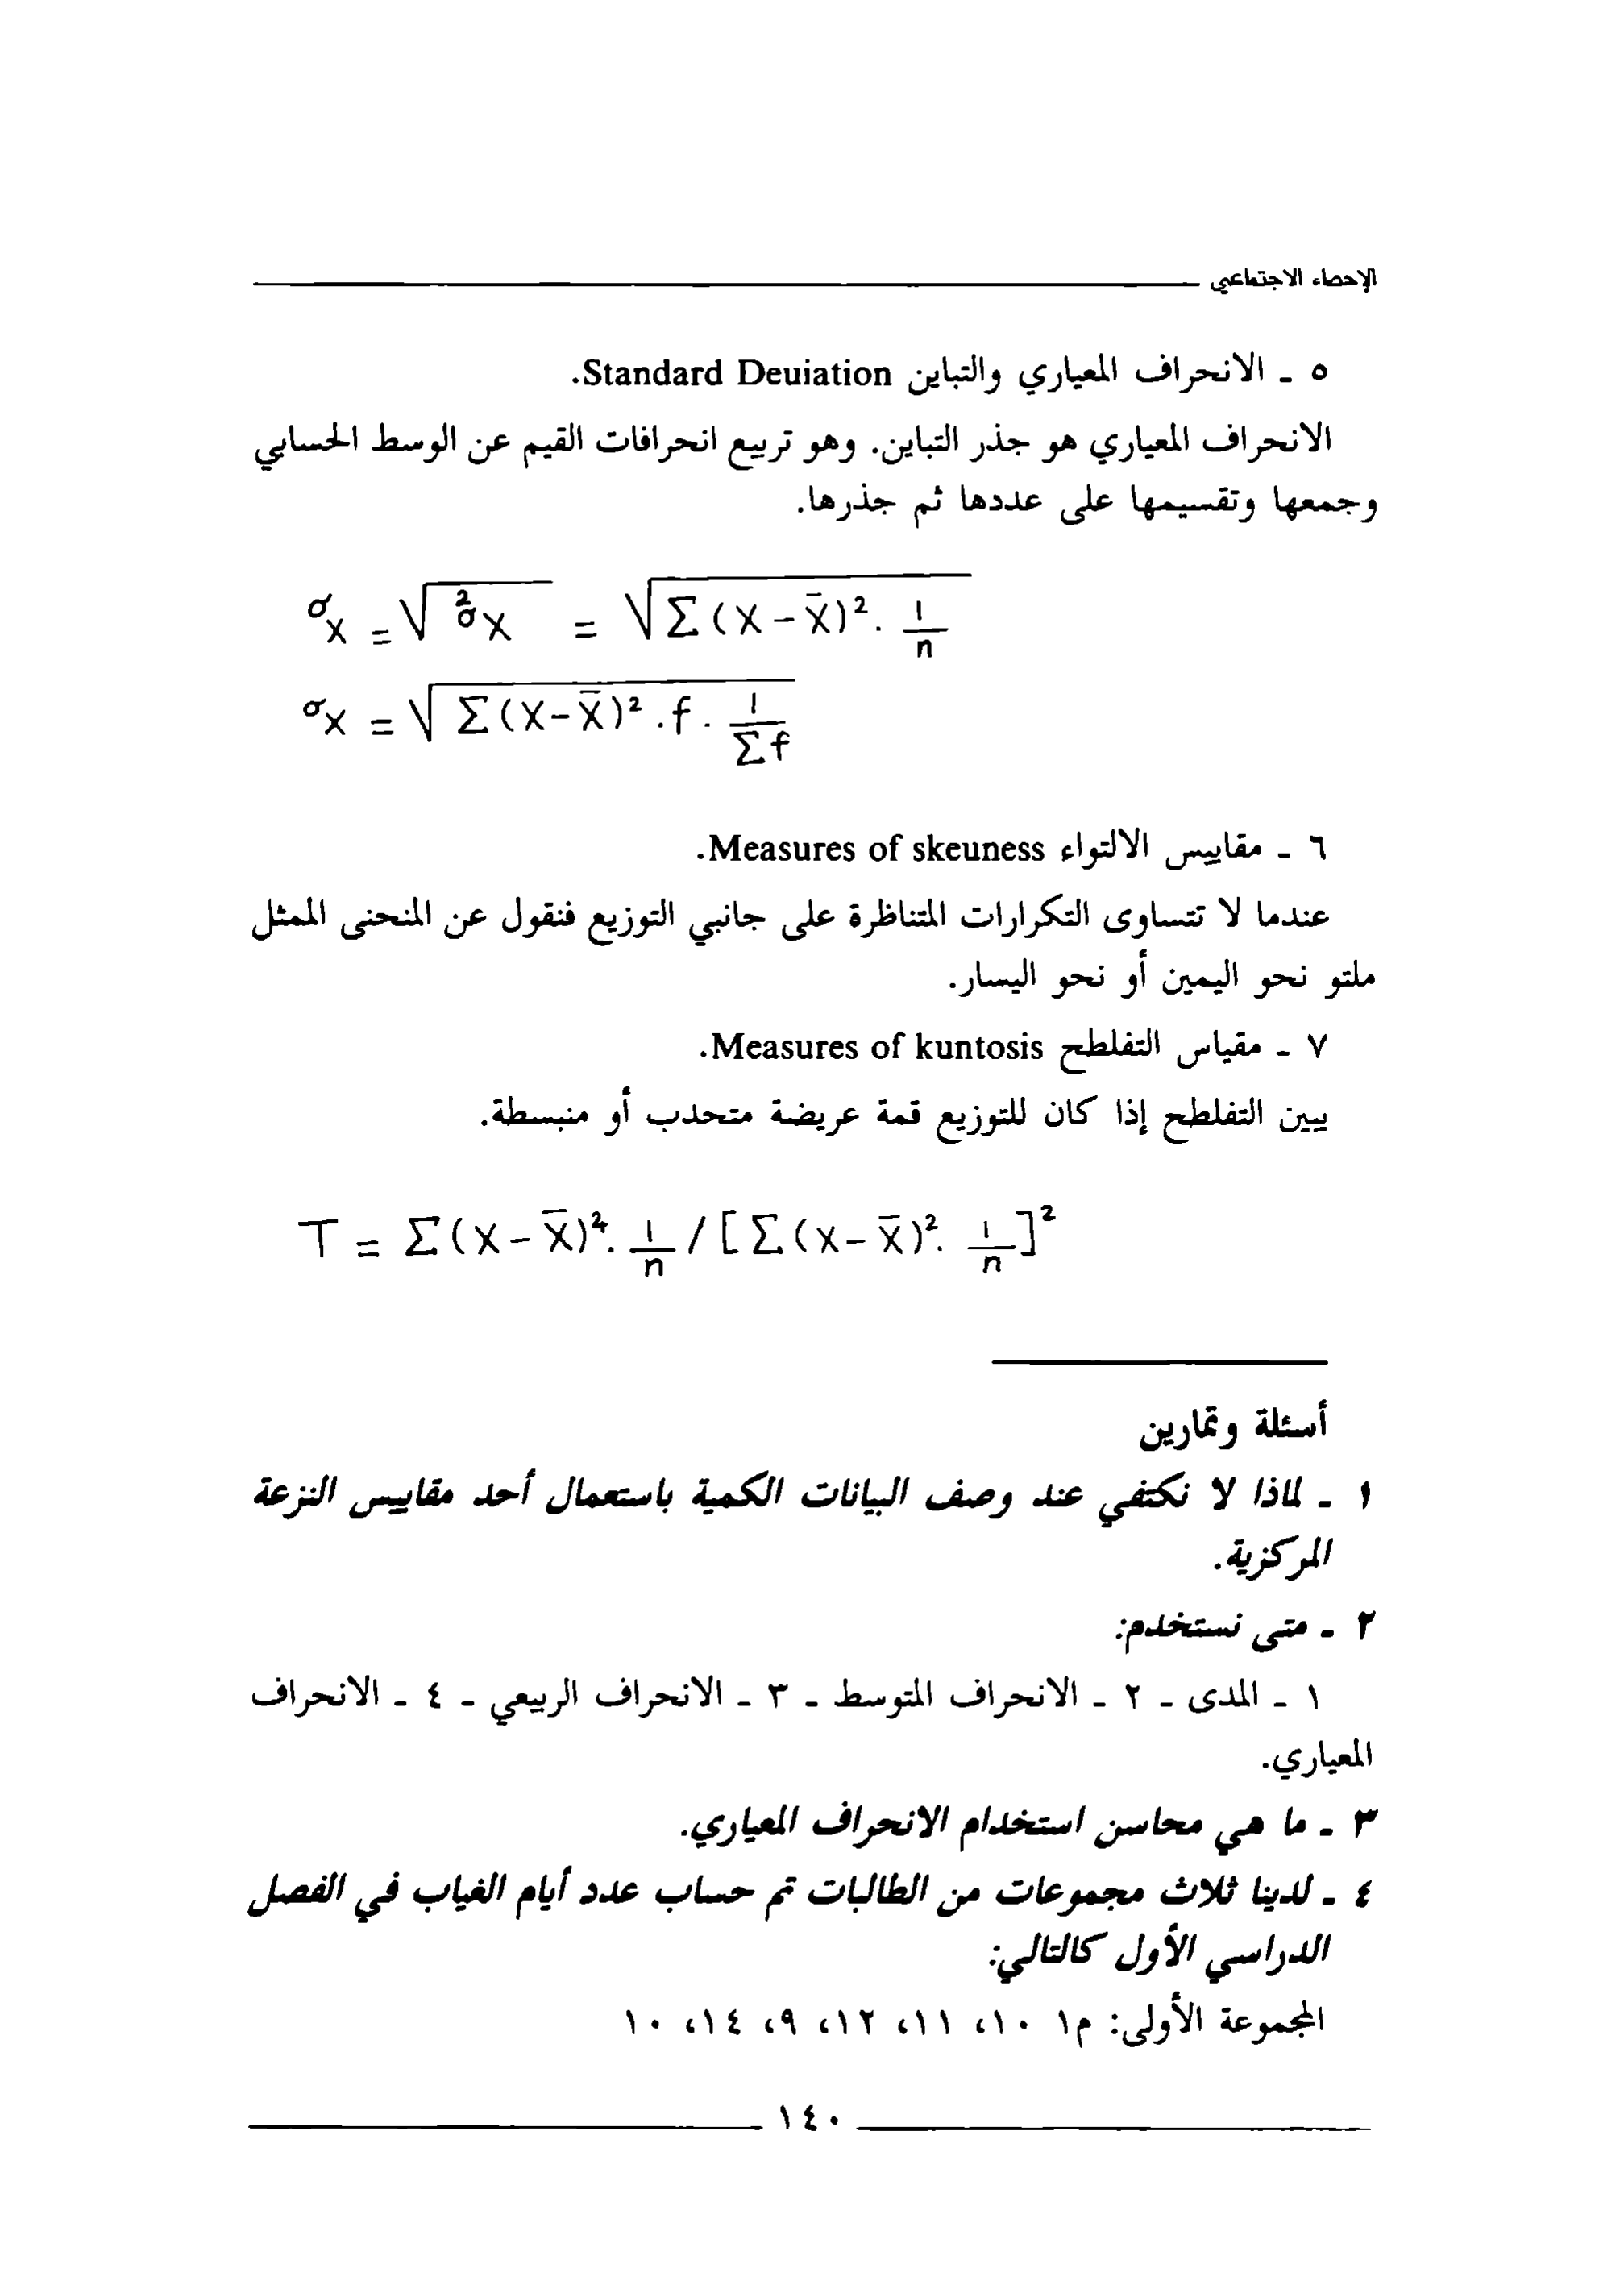 الإحصاء الاجتماعي
٥ ـ الانحراف المعياري والتباين Standard Deuiation.
الانحراف المعياري هو جذر التباين. وهو تربيع انحرافات القيم عن الوسط الحسابي
وجمعها وتقسيمها على عددها ثم جذرها.
σx = √σ²x = √Σ(X-X̄)². 1/n
σx = √Σ(X-X̄)².f. 1/Σf
٦ ـ مقاييس الالتواء Measures of skeuness.
عندما لا تتساوى التكرارات المتناظرة على جانبي التوزيع فنقول عن المنحنى الممثل
ملتو نحو اليمين أو نحو اليسار.
٧ ـ مقياس التفلطح Measures of kuntosis.
يبين التفلطح إذا كان للتوزيع قمة عريضة متحدب أو منبسطة.
T = Σ(x-x̄)⁴. 1/n / [Σ(x-x̄)². 1/n]²
أسئلة وتمارين
١ ـ لماذا لا نكتفي عند وصف البيانات الكمية باستعمال أحد مقاييس النزعة
المركزية.
٢ ـ متى نستخدم:
١ ـ المدى ـ ٢ ـ الانحراف المتوسط ـ ٣ ـ الانحراف الربيعي ـ ٤ ـ الانحراف
المعياري.
٣ ـ ما هي محاسن استخدام الانحراف المعياري.
٤ ـ لدينا ثلاث مجموعات من الطالبات تم حساب عدد أيام الغياب في الفصل
الدراسي الأول كالتالي:
المجموعة الأولى: م١ ١٠، ١١، ١٢، ٩، ١٤، ١٠
١٤٠